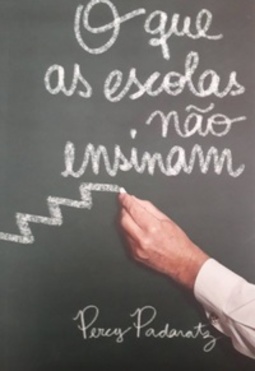 O que
as escolas
não
ensinam
Percy Padaratz